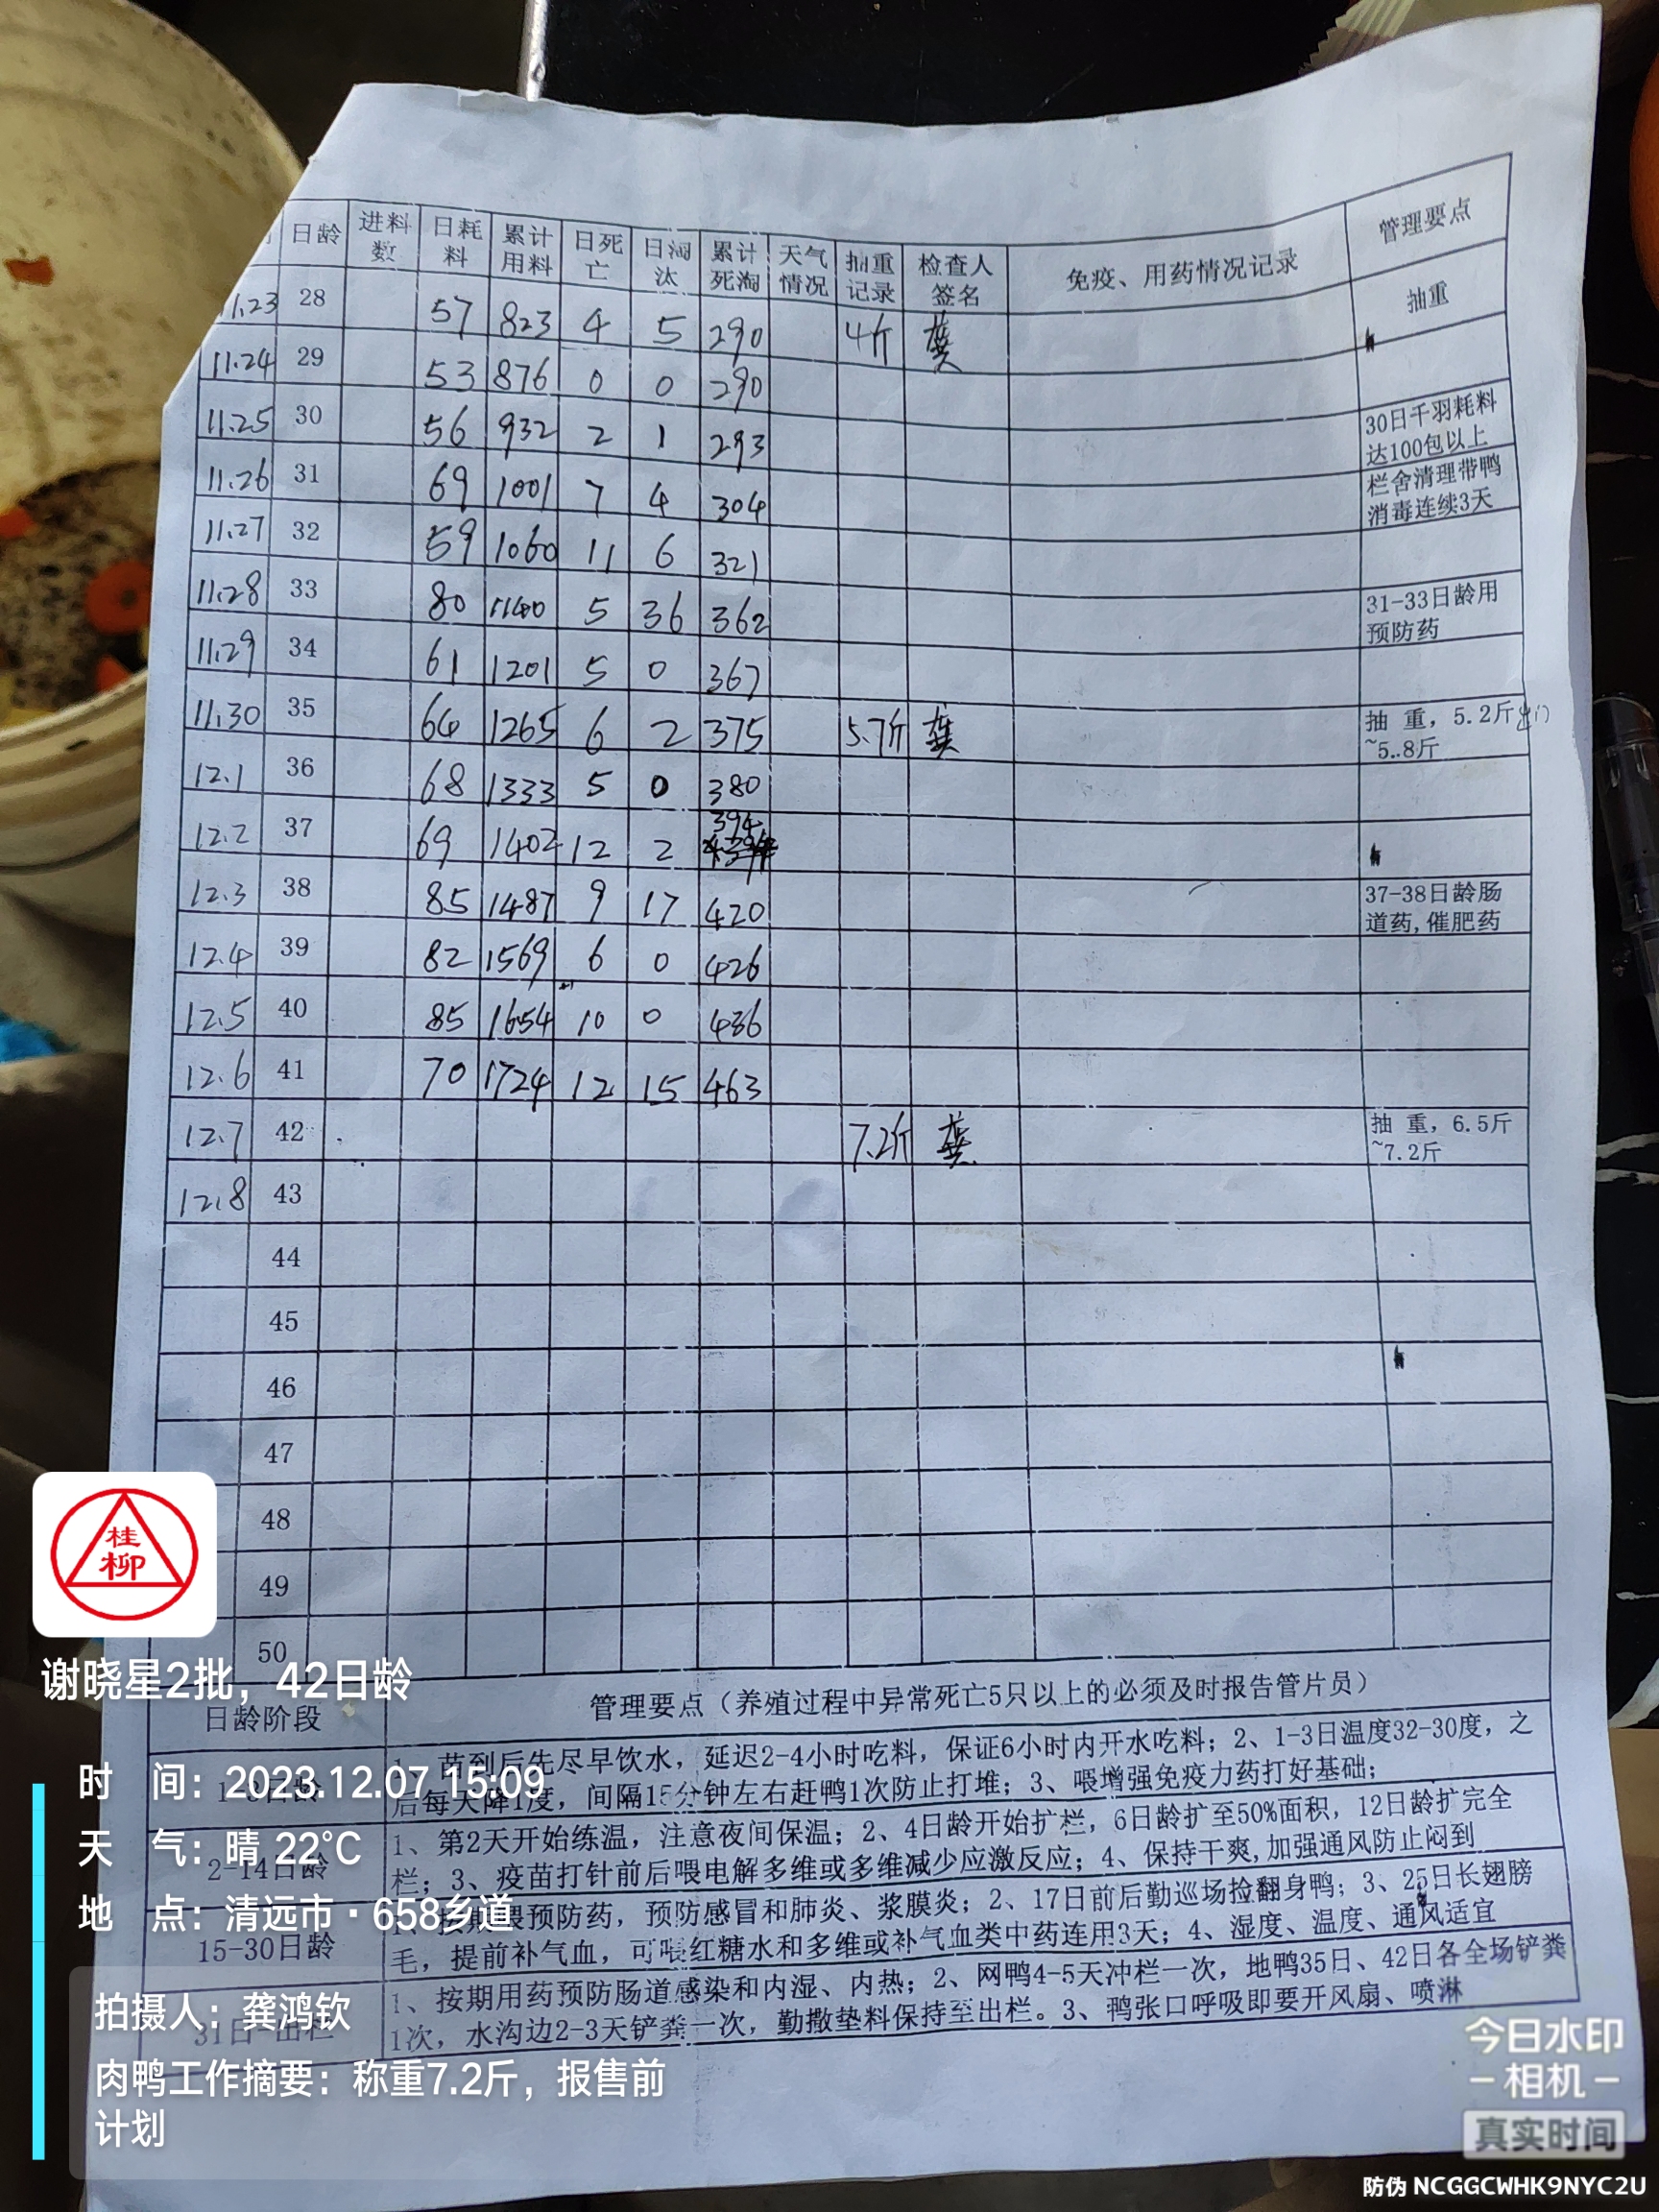 日龄 进料数 日耗料 累计用料 日死亡 日淘汰 累计死淘 天气情况 抽重记录 检查人签名 免疫、用药情况记录 管理要点
11.23 28 57 823 4 5 290 4斤 龚 抽重
11.24 29 53 876 0 0 290
11.25 30 56 932 2 1 293 30日千羽耗料达100包以上
11.26 31 69 1001 7 4 304 栏舍清理带鸭消毒连续3天
11.27 32 59 1060 11 6 321
11.28 33 80 1140 5 36 362 31-33日龄用预防药
11.29 34 61 1201 5 0 367
11.30 35 64 1265 6 2 375 5.7斤 龚 抽 重，5.2斤~5.8斤
12.1 36 68 1333 5 0 380
12.2 37 69 1402 12 2 394
12.3 38 85 1487 9 17 420 37-38日龄肠道药,催肥药
12.4 39 82 1569 6 0 426
12.5 40 85 1654 10 0 436
12.6 41 70 1724 12 15 463
12.7 42 7.2斤 龚 抽 重，6.5斤~7.2斤
12.8 43
44
45
46
47
48
49
50
桂柳
谢晓星2批，42日龄
日龄阶段 管理要点（养殖过程中异常死亡5只以上的必须及时报告管片员）
1-3日龄 1、苗到后先尽早饮水，延迟2-4小时吃料，保证6小时内开水吃料；2、1-3日温度32-30度，之
后每天降1度，间隔15分钟左右赶鸭1次防止打堆；3、喂增强免疫力药打好基础；
2-14日龄 1、第2天开始练温，注意夜间保温；2、4日龄开始扩栏，6日龄扩至50%面积，12日龄扩完全
栏；3、疫苗打针前后喂电解多维或多维减少应激反应；4、保持干爽,加强通风防止闷到
15-30日龄 1、按期喂预防药，预防感冒和肺炎、浆膜炎；2、17日前后勤巡场捡翻身鸭；3、25日长翅膀
毛，提前补气血，可喂红糖水和多维或补气血类中药连用3天；4、湿度、温度、通风适宜
31日-出栏 1、按期用药预防肠道感染和内湿、内热；2、网鸭4-5天冲栏一次，地鸭35日、42日各全场铲粪
1次，水沟边2-3天铲粪一次，勤撒垫料保持至出栏。3、鸭张口呼吸即要开风扇、喷淋
时 间：2023.12.07 15:09
天 气：晴 22°C
地 点：清远市·658乡道
拍摄人：龚鸿钦
肉鸭工作摘要：称重7.2斤，报售前
计划
今日水印
相机
真实时间
防伪 NCGGCWHK9NYC2U